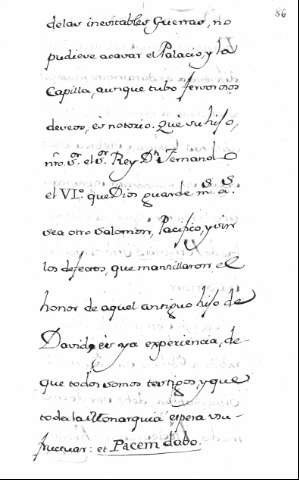 86
delas inevitables Guerras, no
pudiese acavar el Palacio, y la
Capilla, aunque tubo fervorosos
deseos, es notorio. Que su hijo,
nrō. Sōr. el Sōr. Rey Dn. Fernando
el VIº. que Dios guarde ms. as.
sea otro Salomon, Pacifico, y sin
los defectos, que mansillaron el
honor de aquel antiguo hijo de
David, es ya experiencia, de
que todos somos testigos, y que
toda la Monarquia espera usu-
fructuar: et Pacem dabo.